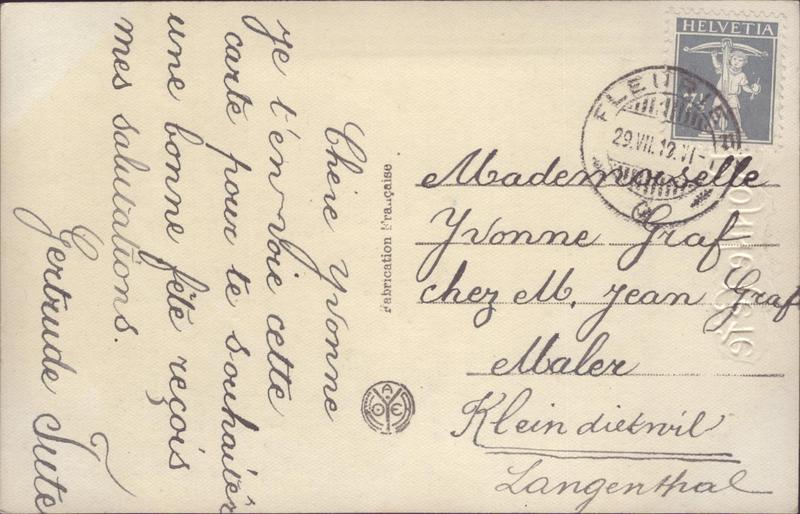 Chère Yvonne
Je t'envoie cette
carte pour te souhaiter
une bonne fête reçois
mes salutations.
Gertrude Jute
Fabrication Française
HELVETIA
FLEURIER
29.VII.12.VI-
Mademoiselle
Yvonne Graf
chez M. Jean Graf
Maler
Kleindietwil
Langenthal